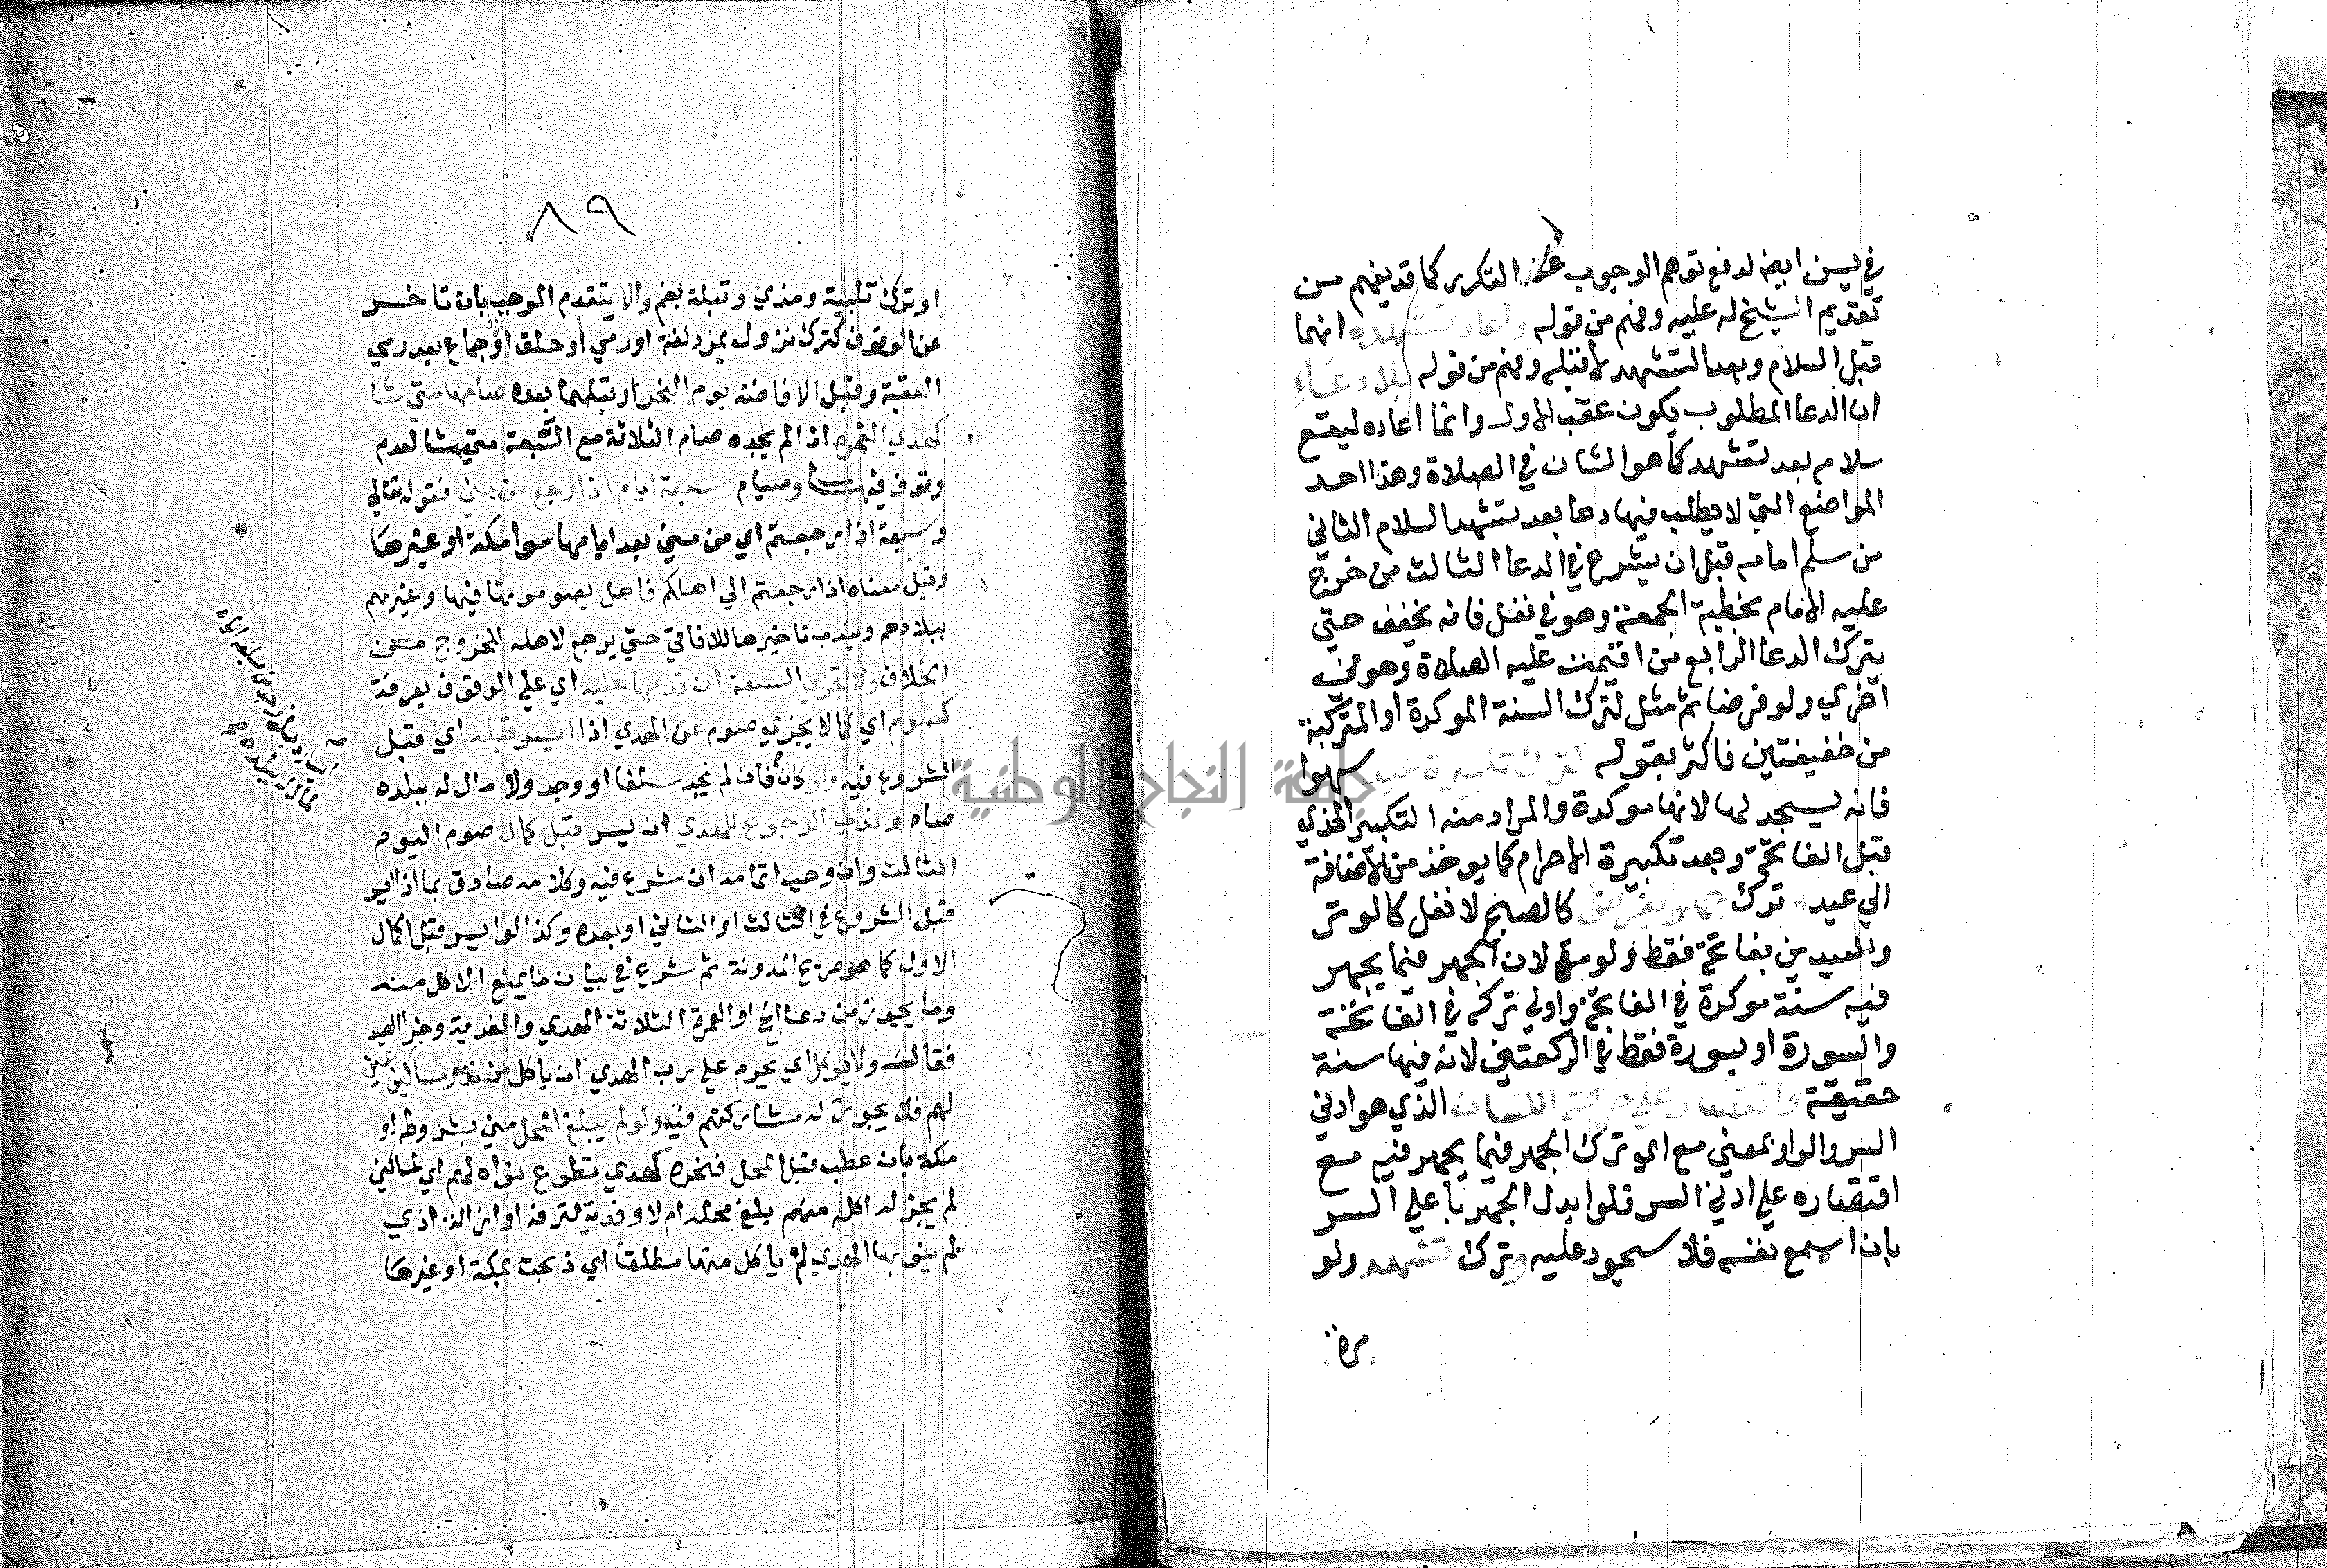 في يسن ايضا لدفع توهم الوجوب التكرر كما قد يفهم من
تقديم الشيخ له عليه وفهم من قوله واعاد تشهده انهما
قبل السلام وبعد التشهد لا قبله وفهم من قوله بلا دعاء
ان الدعا المطلوب يكون عقب الاول وانما اعاده ليقع
سلام بعد تشهد كما هو الشان في الصلاة وهذا احد
المواضع التي لا يطلب فيها دعا بعد تشهد السلام الثاني
من سلم امامه قبل ان يشرع في الدعا الثالث من خرج
عليه الامام بخطبة الجمعة وهو في نفل فانه يخفف حتي
يترك الدعا الرابع من اقيمت عليه الصلاة وهو في
اخري ولو فرضا ثم مثل لترك السنة الموكدة او المتركبة
من خفيفتين فاكثر بقوله كترك تكبيرة عيد سهوا
فانه يسجد لها لانها موكدة والمراد منه التكبير الذي
قبل الفاتحة وبعد تكبيرة الاحرام كما يوخذ من الاضافة
الي عيد وترك جهر بفرض كالصبح لا نفل كالوتر
والعيدين بفاتحة فقط ولو مرة لان الجهر فيما يجهر
فيه سنة موكدة في الفاتحة واولي تركه في الفاتحة
والسورة او بسورة فقط في الركعتين لانه فيها سنة
حقيقة واقتصار علي حركة اللسان الذي هو ادني
السر والواو بمعني مع اي ترك الجهر فيما يجهر فيه مع
اقتصاره علي ادني السر فلو ابدل الجهر باعلي السر
بان اسمع نفسه فلا سجود عليه وترك تشهد ولو
مرة
٨٩
او ترك تلبية ومذي وقبلة بفم والا يتقدم الموجب بان تاخر
عن الوقوف كترك نزول بمزدلفة او رمي او حلق او جماع بعد رمي
العقبة وقبل الافاضة يوم النحر او قبلهما بعده صامها متي شا
كهدي العمرة اذا لم يجده صام الثلاثة مع السبعة متي شا لعدم
وقوف فيها وصيام سبعة ايام اذا رجع من مني فقوله تعالي
وسبعة اذا رجعتم اي من مني بعد ايامها سوا مكة او غيرها
وقيل معناه اذا رجعتم الي اهلكم فاهل يصومونها فيها وغيرهم
ببلادهم ويندب تاخيرها للافاقي حتي يرجع لاهله للخروج من
الخلاف ولا تجزي السبعة ان قدمها عليه اي علي الوقوف بعرفة
كصوم اي كما لا يجزي صوم عن الهدي اذا ايسر قبله اي قبل
الشروع فيه ولو كان فان لم يجد سلفا او وجد ولا مال له ببلده
صام وندب الرجوع للهدي ان يسر قبل كمال صوم اليوم
الثالث وان وجب اتمامه ان شرع فيه وكلامه صادق بما اذا ايسر
قبل الشروع في الثالث او الثاني او بعده وكذا لو ايسر قبل اكمال
الاول كما هو صريح المدونة ثم شرع في بيان ما يمنع الاكل منه
وما يجوز من دماء الحج او العمرة الثلاثة الهدي والفدية وجزا الصيد
فقال ولا يوكل اي يحرم علي رب الهدي ان ياكل من نذر مساكين عين
لهم فلا يجوز له مشاركتهم فيه ولو لم يبلغ المحل مني بشروطه او
مكة بان عطب قبل المحل فنحره كهدي تطوع نواه لهم اي لمساكين
لم يجز له اكل منهم بلغ محله ام لا وفدية لترفه او ازالة اذي
لم ينو بها الهدي لم ياكل منها مطلقا اي ذبحت بمكة او غيرها